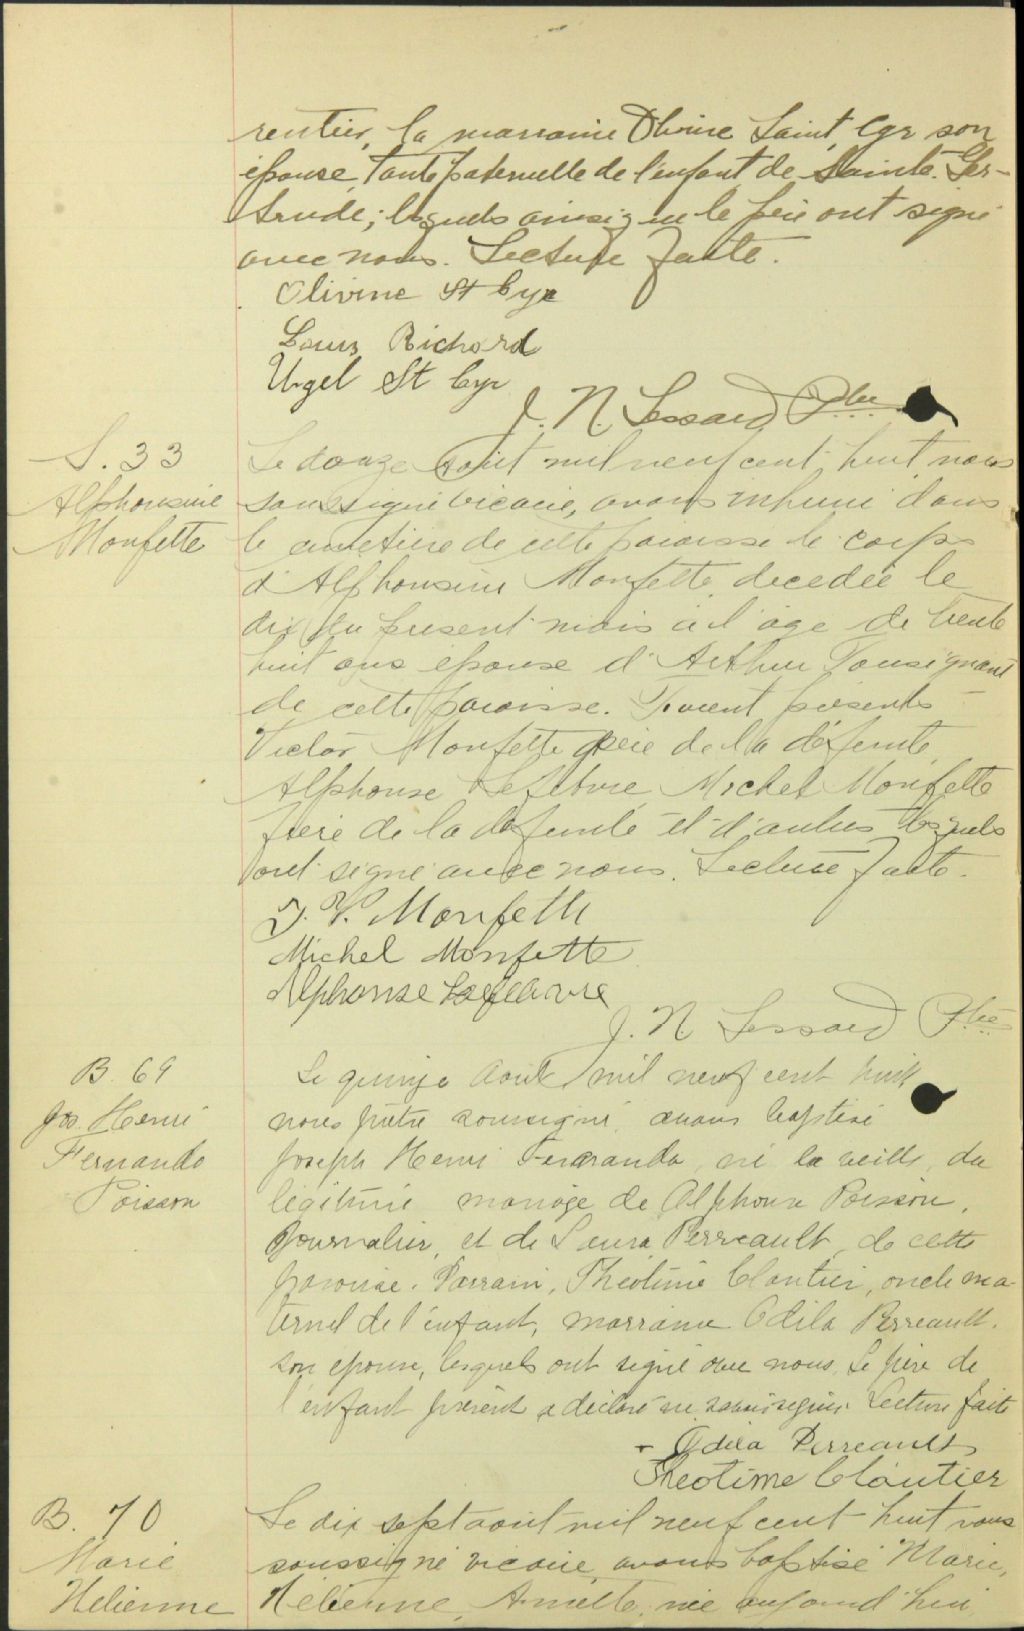 rentier, la marraine Olivine Saint Cyr son
épouse, tante paternelle de l'enfant de Sainte. Ger-
trude; lesquels ainsi que le père ont signé
avec nous. Lecture faite.
Olivine St Cyr
Louis Richard
Urgel St Cyr
J. N. Lessard Ptre
S. 33
Alphonsine
Monfette
Le douze Août mil neuf cent huit nous
soussigné vicaire, avons inhumé dans
le cimetière de cette paroisse le corps
d'Alphonsine Monfette, décédée le
dix du présent mois à l'âge de trente
huit ans épouse d'Arthur Tousignant
de cette paroisse. Furent présents
Victor Monfette père de la défunte,
Alphonse Lefebvre, Michel Monfette
frère de la défunte et d'autres lesquels
ont signé avec nous. Lecture faite.
J. V. Monfette
Michel Monfette
Alphonse Lefebvre
J. N. Lessard Ptre
B. 69
Jos. Henri
Fernando
Poisson
Le quinze Août mil neuf cent huit
nous prêtre soussigné avons baptisé
Joseph Henri Fernando, né la veille, du
légitime mariage de Alphonse Poisson,
Journalier, et de Laura Perreault, de cette
paroisse. Parrain, Théotime Cloutier, oncle ma-
ternel de l'enfant, marraine Odila Perreault,
son épouse, lesquels ont signé avec nous. Le père de
l'enfant présent a déclaré ne savoir signer. Lecture faite
Odila Perreault
Theotime Cloutier
B. 70
Marie
Helienne
Le dix sept août mil neuf cent huit nous
soussigné vicaire, avons baptisé Marie,
Hélienne, Annette, née aujourd'hui